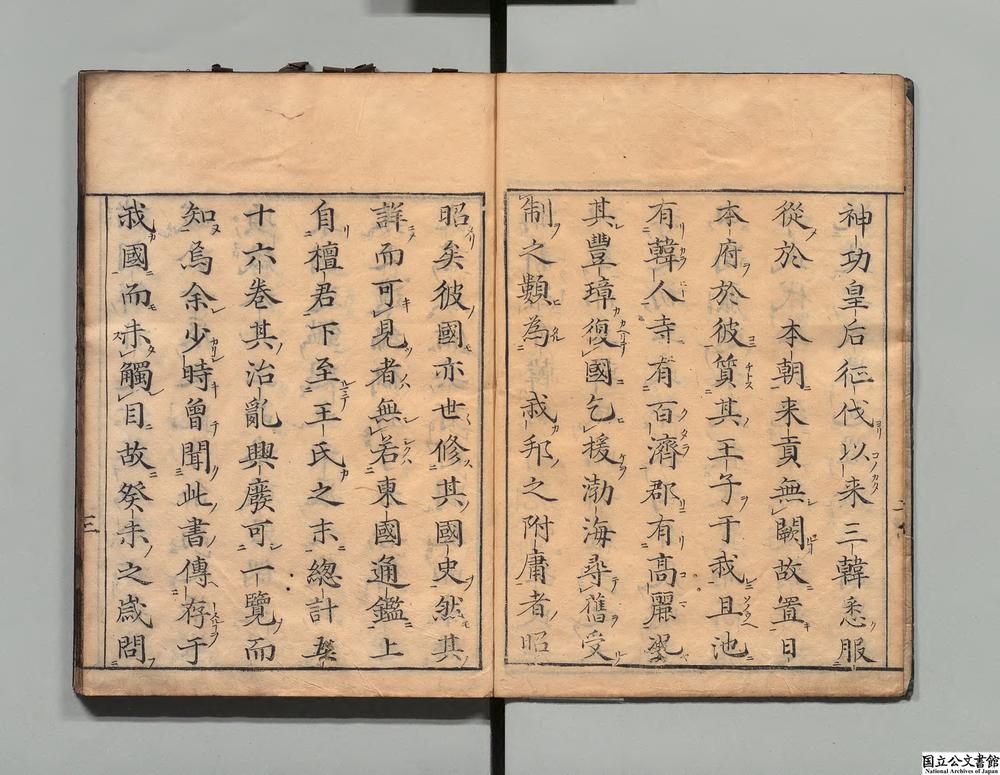 神功皇后征伐以来三韓悉服
從於　本朝来貢無闕故置日
本府於彼質其王子于我且池
有韓人寺有百濟郡有高麗
其豐璋復國乞援渤海尋舊受
制之類為我邦之附庸者昭
昭矣彼國亦世修其國史然其
詳而可見者無若東國通鑑上
自檀君下至王氏之末總計五
十六卷其治亂興廢可一覽而
知焉余少時曾聞此書傳存于
我國而未觸目故癸未之歳問
三
国立公文書館
National Archives of Japan